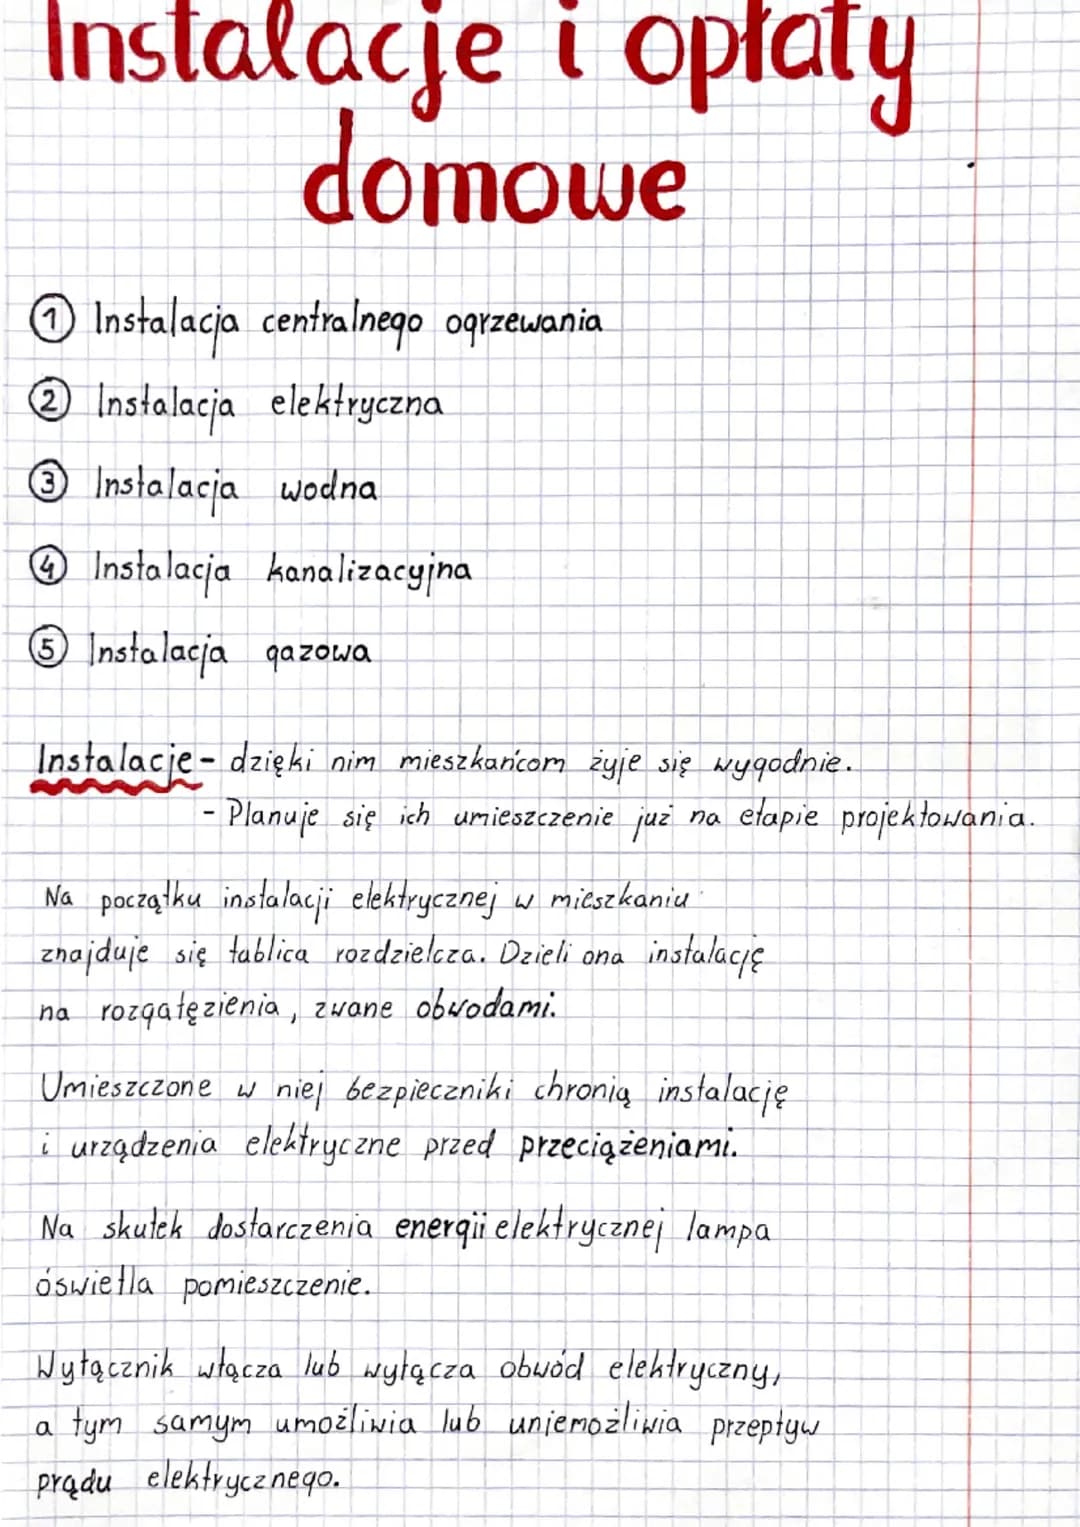 Instalacje i opłaty
domowe
1 Instalacja centralnego ogrzewania
2 Instalacja elektryczna
3 Instalacja wodna
4 Instalacja kanalizacyjna
5 Instalacja gazowa
Instalacje - dzięki nim mieszkańcom żyje się wygodnie.
- Planuje się ich umieszczenie już na etapie projektowania.
Na początku instalacji elektrycznej w mieszkaniu
znajduje się tablica rozdzielcza. Dzieli ona instalację
na rozgałęzienia, zwane obwodami.
Umieszczone w niej bezpieczniki chronią instalację
i urządzenia elektryczne przed przeciążeniami.
Na skutek dostarczenia energii elektrycznej lampa
óświetla pomieszczenie.
Wyłącznik włącza lub wyłącza obwód elektryczny,
a tym samym umożliwia lub uniemożliwia przepływ
prądu elektrycznego.